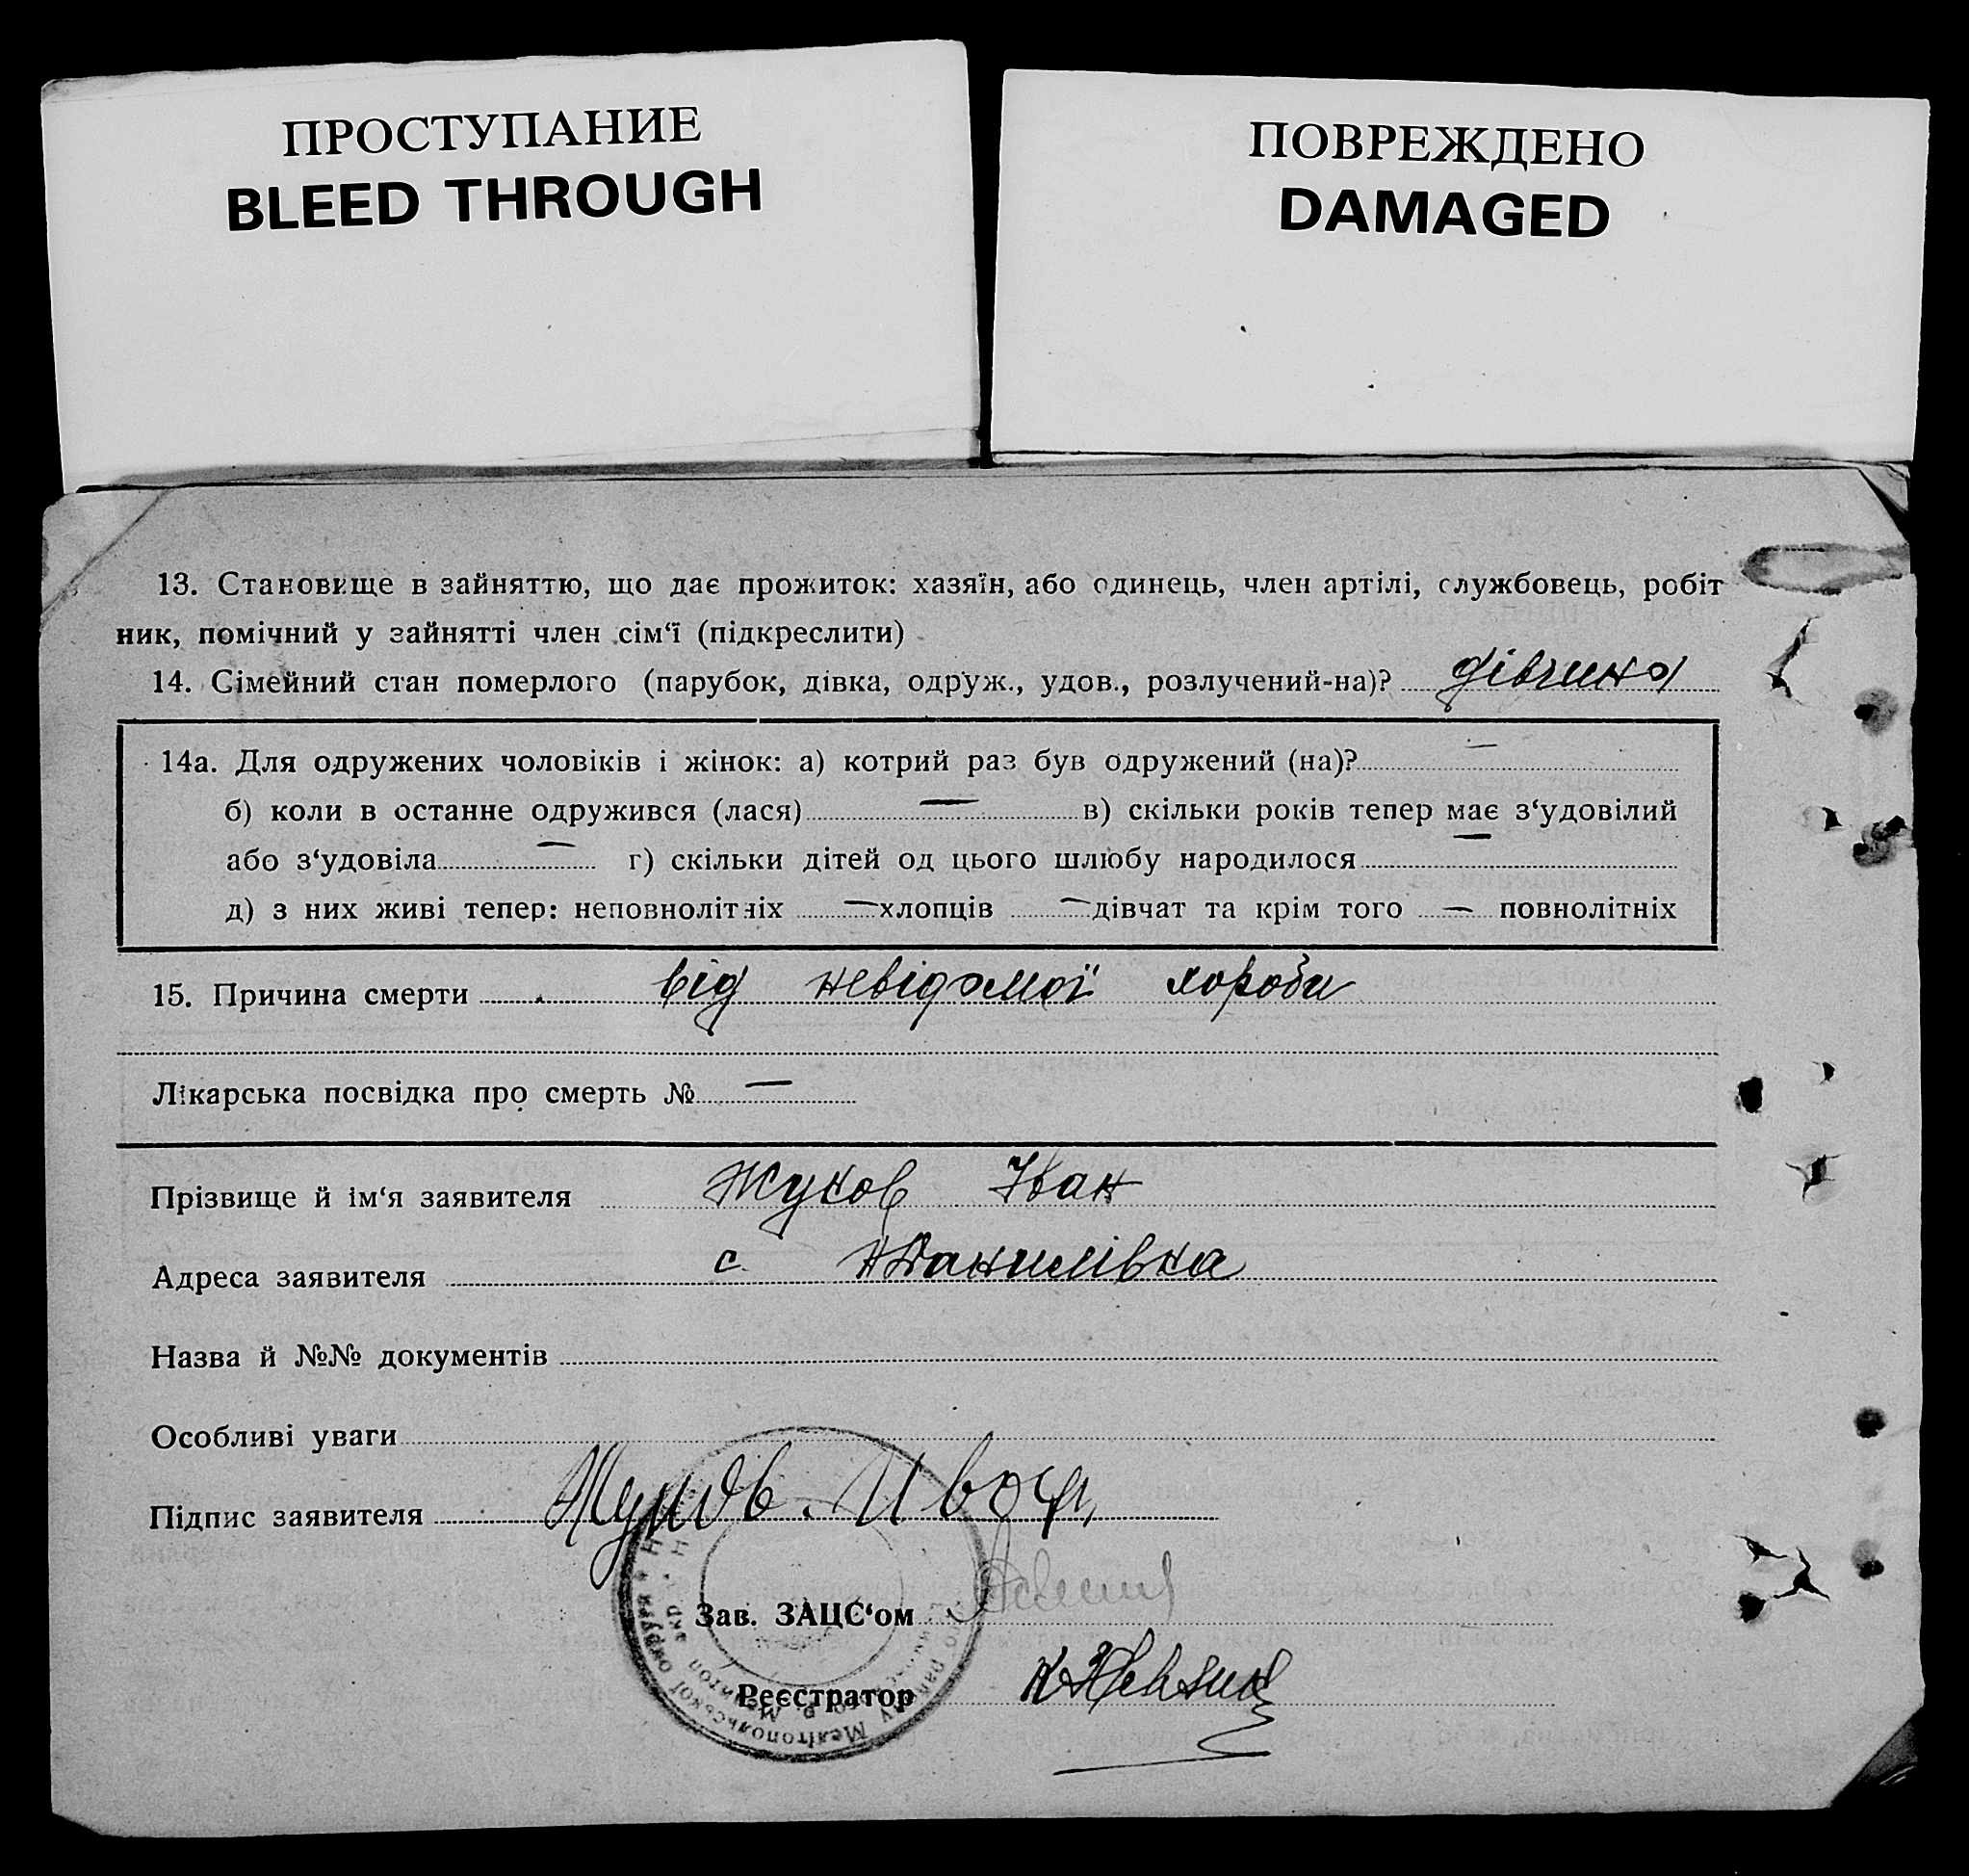 ПРОСТУПАНИЕ
BLEED THROUGH
ПОВРЕЖДЕНО
DAMAGED
13. Становище в зайняттю, що дає прожиток: хазяїн, або одинець, член артілі, службовець, робіт
ник, помічний у зайнятті член сім‘ї (підкреслити)
14. Сімейний стан померлого (парубок, дівка, одруж., удов., розлучений-на)? дівчина
14а. Для одружених чоловіків і жінок: а) котрий раз був одружений (на)? —
б) коли в останне одружився (лася) — в) скільки років тепер має з‘удовілий
або з‘удовіла — г) скільки дітей од цього шлюбу народилося —
д) з них живі тепер: неповнолітніх — хлопців — дівчат та крім того — повнолітніх
15. Причина смерти від невідомої хороби
Лікарська посвідка про смерть № —
Прізвище й ім‘я заявителя Жуков Іван
Адреса заявителя с Н Данилівка
Назва й №№ документів
Особливі уваги
Підпис заявителя Жуков. Иван
Зав. ЗАЦС‘ом
Реєстратор
Мелітопольської округи